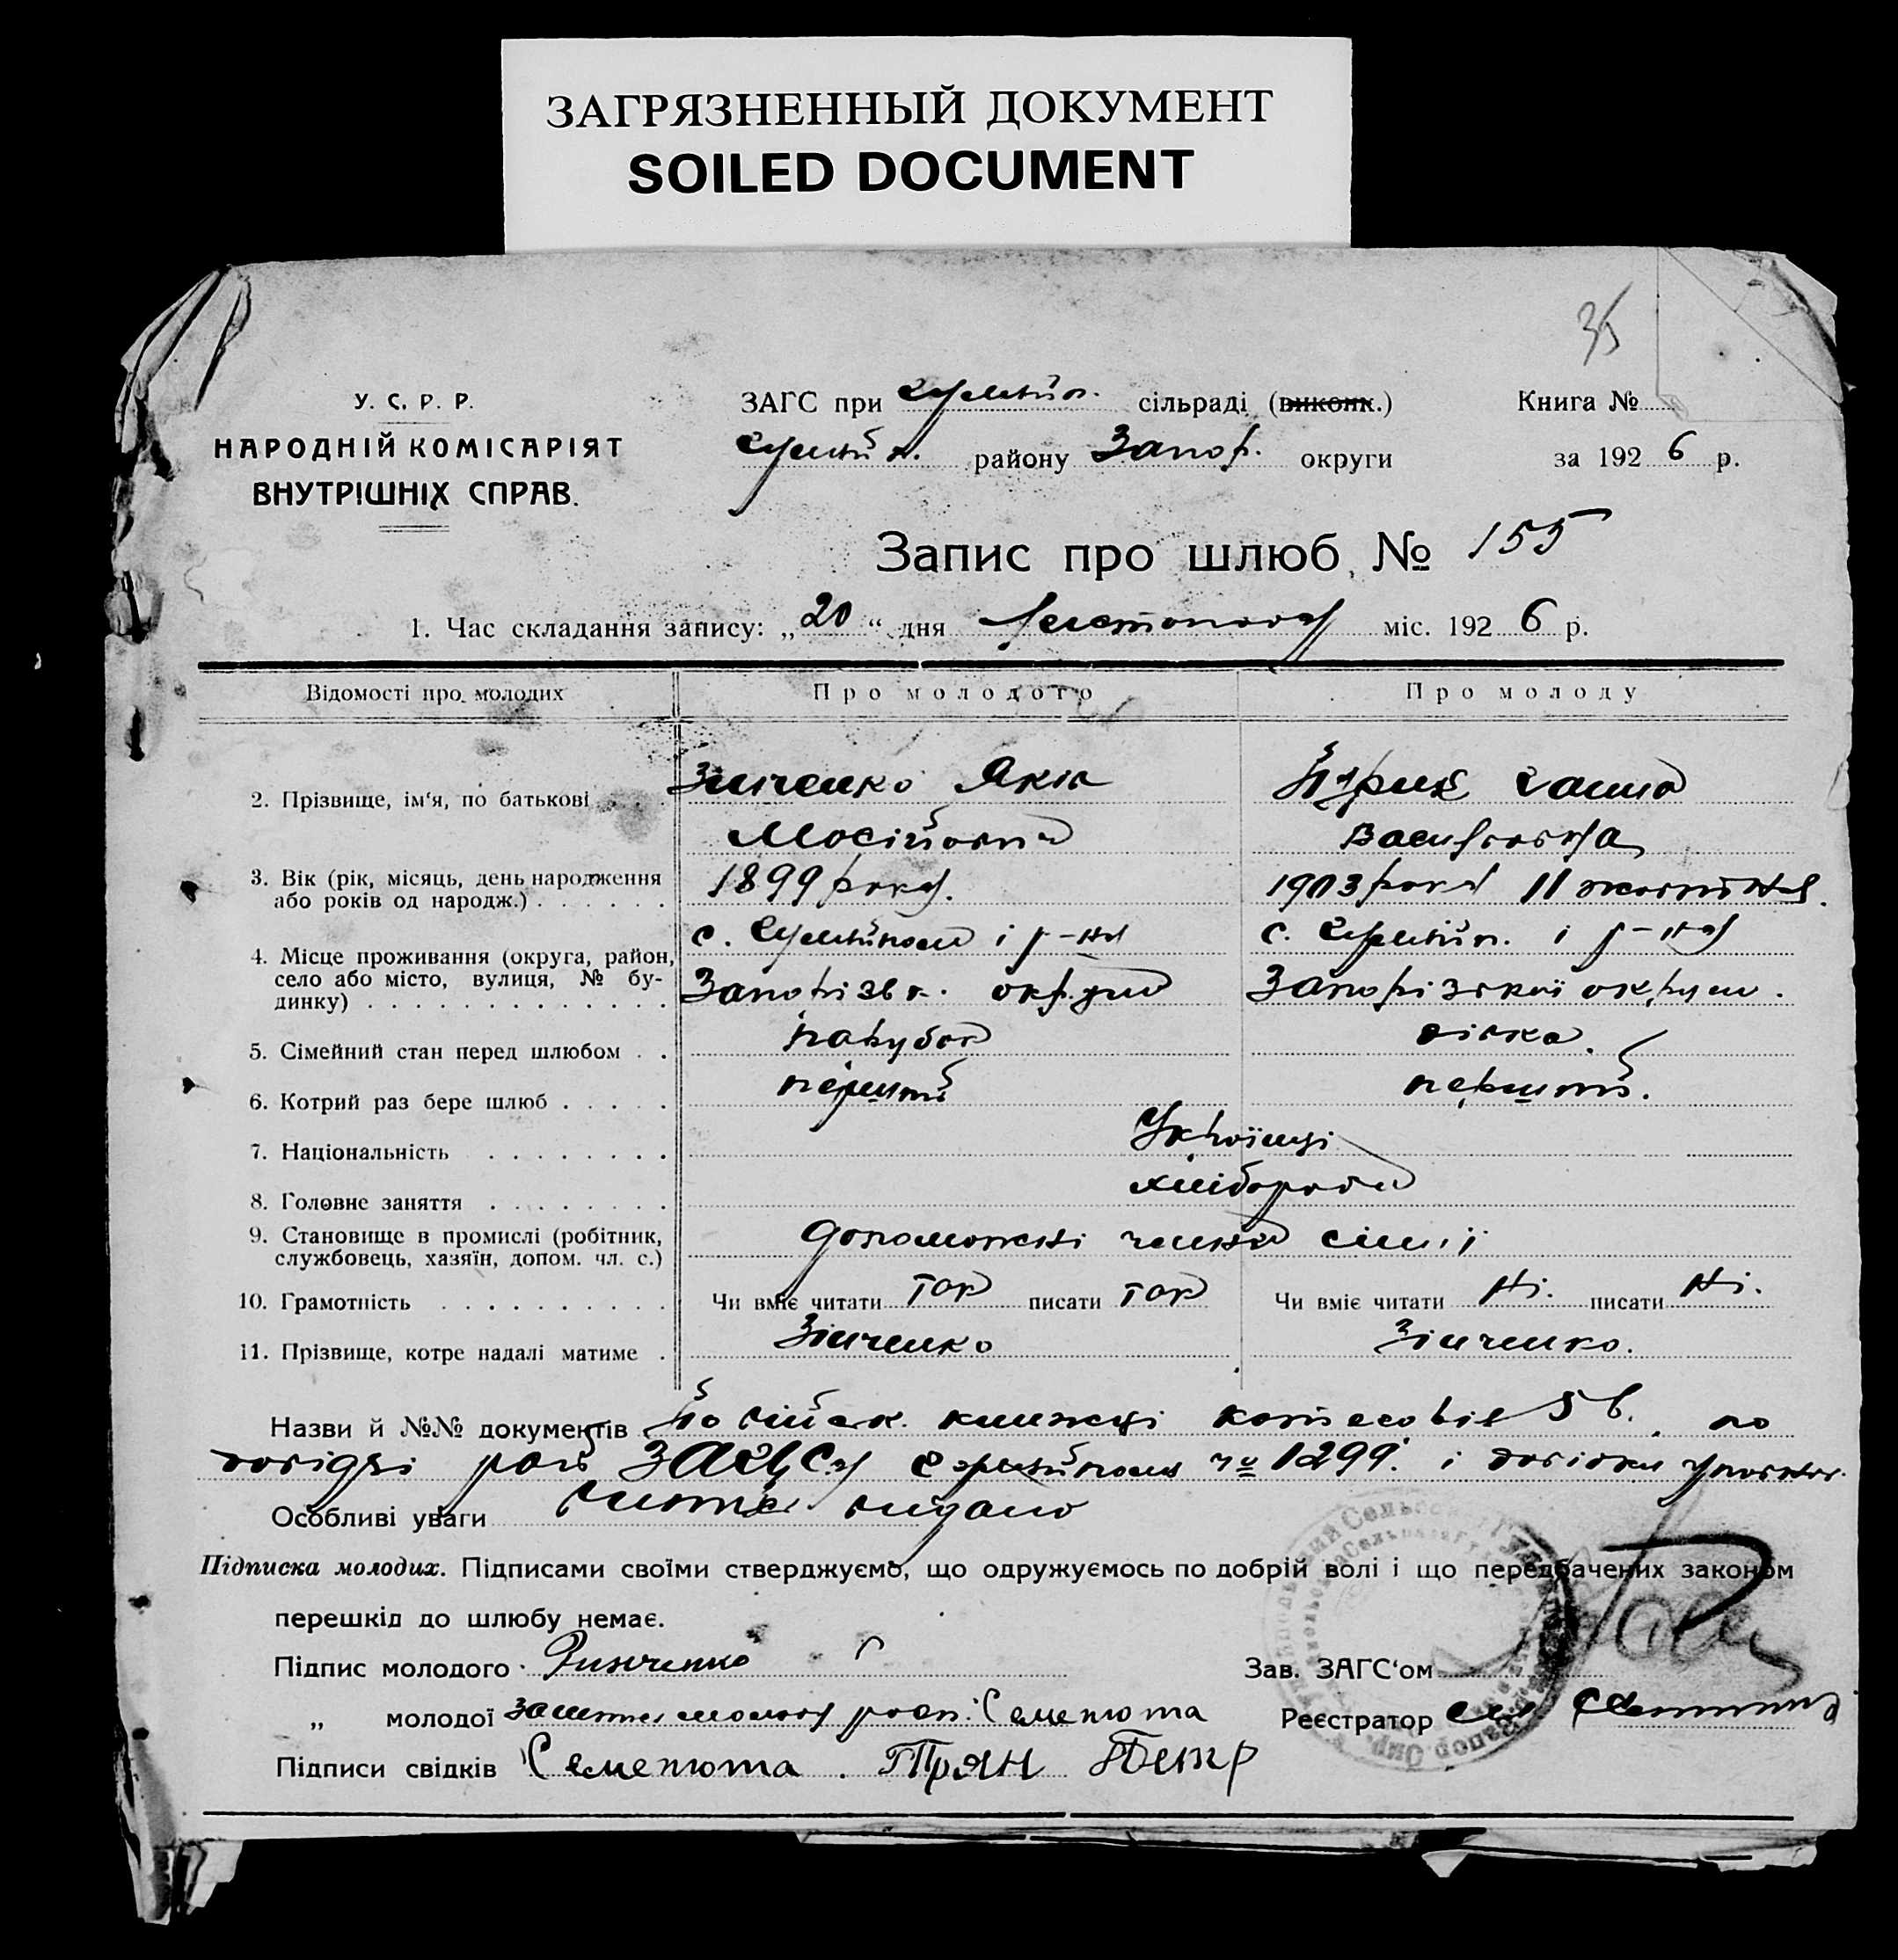 ЗАГРЯЗНЕННЫЙ ДОКУМЕНТ
SOILED DOCUMENT
35
У. С. Р. Р.
НАРОДНІЙ КОМІСАРІЯТ
ВНУТРІШНІХ СПРАВ.
ЗАГС при сільраді (виконк.)
району Запор. округи
Книга №
за 1926 р.
Запис про шлюб № 155
1. Час складання запису: „20“ дня листопада міс. 1926 р.
Відомості про молодих Про молодого Про молоду
2. Прізвище, ім‘я, по батькові . . . Зінченко Яків Ганна
Мосійович Василівна
3. Вік (рік, місяць, день народження
або років од народж.) . . . . . . 1899 року. 1903 року 11 жовтня.
4. Місце проживання (округа, район,
село або місто, вулиця, № бу-
динку) . . . . . . . . . . . . .
с. і р-ну с. і р-ну
Запорізьк. округи Запорізької округи.
5. Сімейний стан перед шлюбом . . парубок дівка.
6. Котрий раз бере шлюб . . . . . перший перший.
7. Національність . . . . . . . . Українці
8. Головне заняття . . . . . . . . хлібороби
9. Становище в промислі (робітник,
службовець, хазяїн, допом. чл. с.) допоможні члени сім'ї
10. Грамотність . . . . . . . . . . Чи вміє читати так писати так Чи вміє читати Ні. писати Ні.
11. Прізвище, котре надалі матиме . Зінченко Зінченко.
Назви й №№ документів По військ. книжці по
довідці ЗАГС'у № 1299. і довідки
Особливі уваги видано
Підписка молодих. Підписами своїми стверджуємо, що одружуємось по добрій волі і що передбачених законом
перешкід до шлюбу немає.
Підпис молодого Зинченко
Зав. ЗАГС‘ом
„ молодої за розп. Семенюта
Реєстратор
Підписи свідків Семенюта. Прян Петр